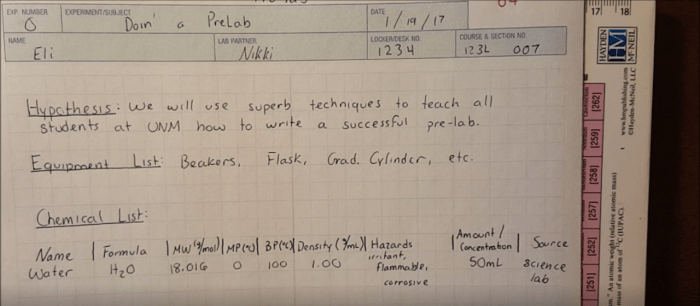 EXP. NUMBER EXPERIMENT/SUBJECT DATE
0 Doin' a PreLab 1/19/17
NAME LAB PARTNER LOCKER/DESK NO. COURSE & SECTION NO.
Eli Nikki 1234 123L 007
Hypothesis: We will use superb techniques to teach all
students at UNM how to write a successful pre-lab.
Equipment List: Beakers, Flask, Grad. Cylinder, etc.
Chemical List:
Name | Formula | MW (g/mol) | MP(°C) | BP(°C) | Density (g/mL) | Hazards | Amount / Concentration | Source
Water H2O 18.016 0 100 1.00 irritant, flammable, corrosive 50mL Science lab
17 18
HAYDEN
HM
McNEIL
www.hmpublishing.com
©Hayden-McNeil, LLC
[251] [252] [257] [258] [259] [262]
An atomic weight (relative atomic mass)
mass of an atom of 12C (IUPAC)